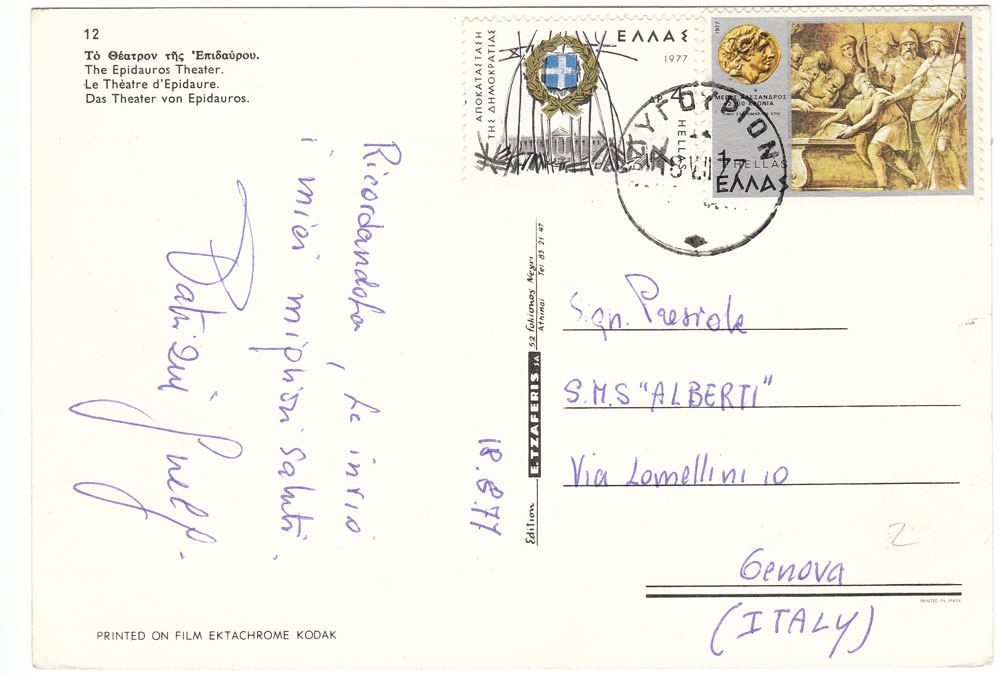 12
Τὸ Θέατρον τῆς Ἐπιδαύρου.
The Epidauros Theater.
Le Thèatre d'Epidaure.
Das Theater von Epidauros.
Ricordandola, Le invio
i miei migliori saluti.
18.8.77
PRINTED ON FILM EKTACHROME KODAK
Edition E.TZAFERIS SA
52 Fokionos Negri
Athinai Tel 83 21 47
ΑΠΟΚΑΤΑΣΤΑΣΗ
ΤΗΣ ΔΗΜΟΚΡΑΤΙΑΣ
ΕΛΛΑΣ
1977
HELLAS
4
1977
ΜΕΓΑΣ ΑΛΕΞΑΝΔΡΟΣ
2300 ΧΡΟΝΙΑ
HELLAS
ΕΛΛΑΣ
ΛΥΓΟΥΡΙΟΝ
Sgn. Preside
S.M.S "ALBERTI"
Via Lomellini 10
Genova
(ITALY)
PRINTED IN SPAIN
2